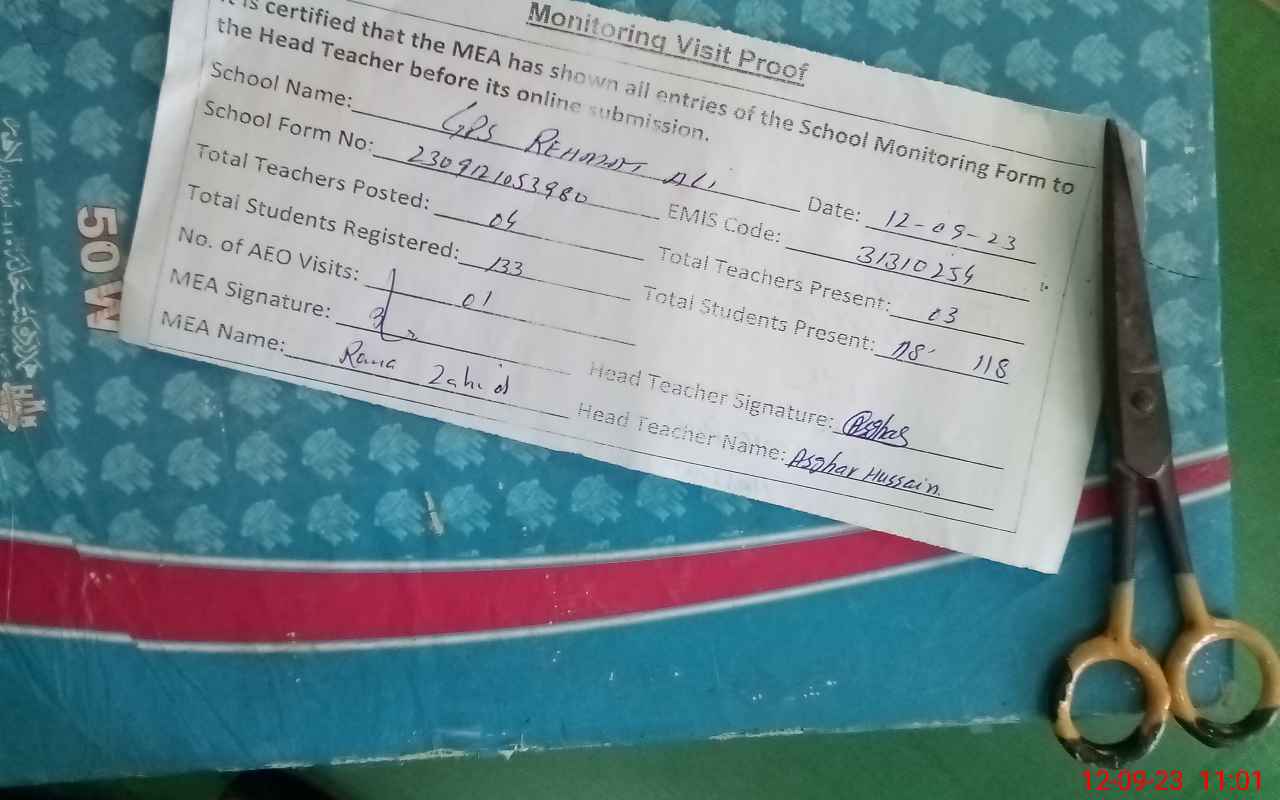 Monitoring Visit Proof
It is certified that the MEA has shown all entries of the School Monitoring Form to
the Head Teacher before its online submission.
School Name: GPS REHMAT ALI Date: 12-09-23
School Form No: 2309121053980 EMIS Code: 31310254
Total Teachers Posted: 04 Total Teachers Present: 03
Total Students Registered: 133 Total Students Present: 118 118
No. of AEO Visits: 01
MEA Signature: Head Teacher Signature: Asghar
MEA Name: Rana Zahid Head Teacher Name: Asghar Hussain.
50W
12-09-23 11:01